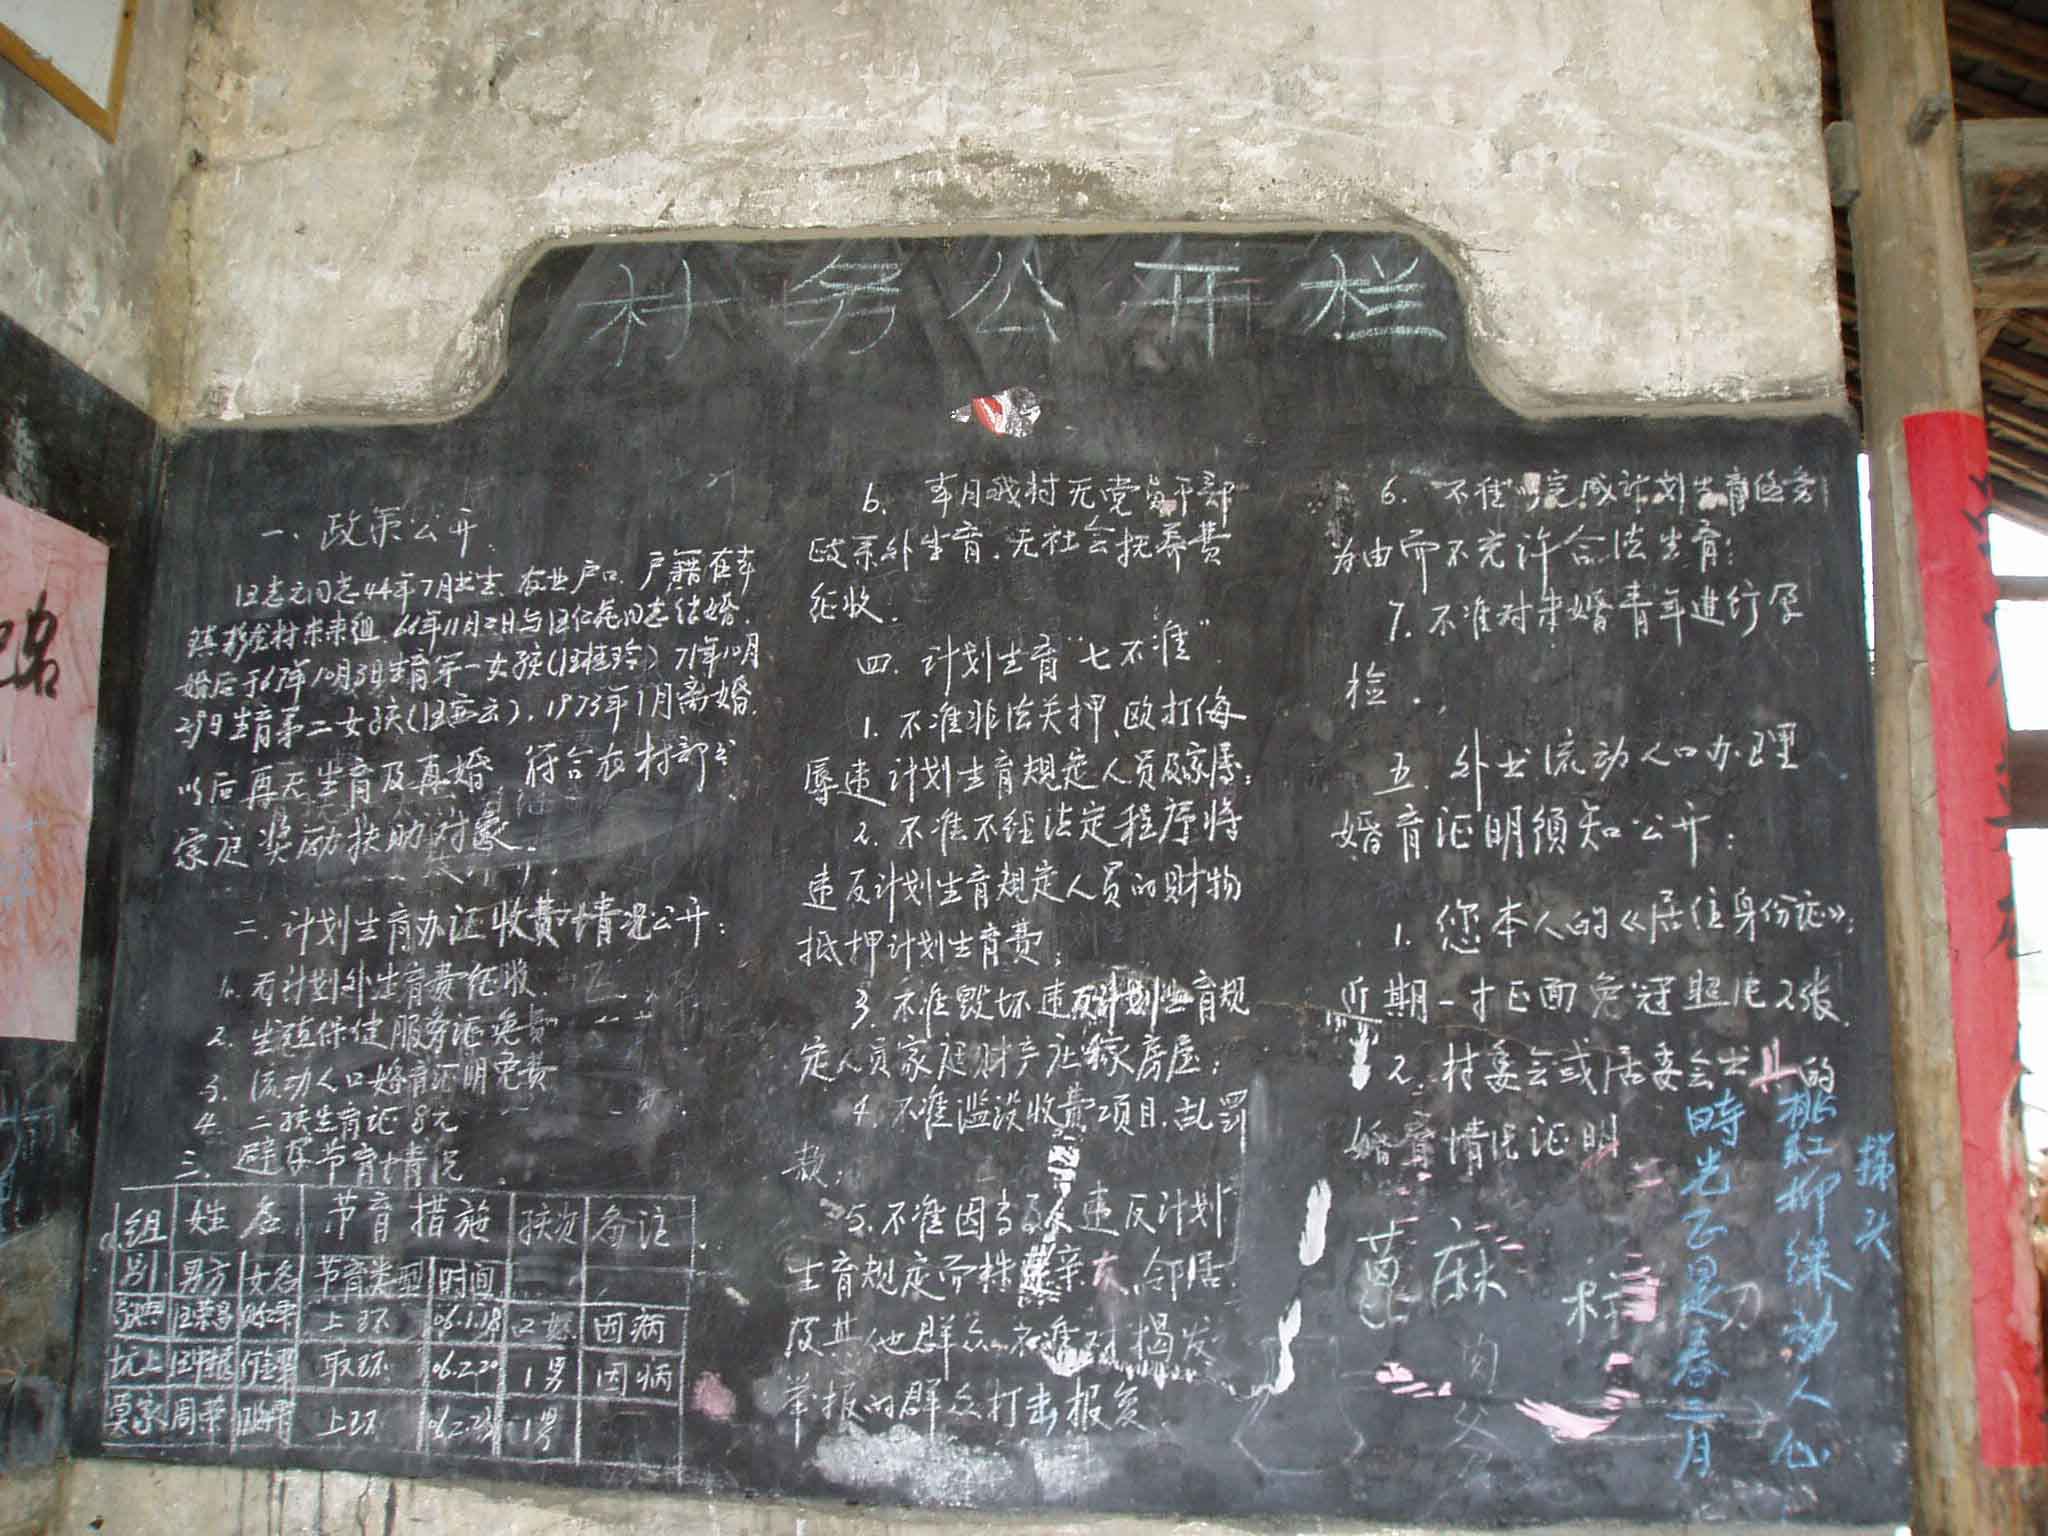 村务公开栏
一. 政策公开.
汪志之同志44年7月出生.农业户口.户籍在本
镇 村 组.66年11月2日与汪仁花同志结婚.
婚后于67年10月3日生育第一女孩(汪桂玲)71年10月
29日生育第二女孩(汪 云).1973年1月离婚.
以后再无生育及再婚 符合农村部分
家庭奖励扶助对象.
二.计划生育办证收费情况公开:
1. 计划外生育费征收.
2. 生殖保健服务证免费
3. 流动人口婚育证明免费
4. 二孩生育证8元
三. 避孕节育情况
组 姓名 节育措施 孩次 备注
别 男方 女名 节育类型 时间
汪荣昌 上环 06.1.18 因病
坑上 取环 06.2.20 1男 因病
吴家 周荣 上环 06.2. 1男
6. 本月我村无党员干部
政策外生育.无社会抚养费
征收.
四.计划生育“七不准”
1. 不准非法关押、殴打侮
辱违计划生育规定人员及家属;
2. 不准不经法定程序将
违反计划生育规定人员的财物
抵押计划生育费;
3. 不准毁坏违反计划生育规
定人员家庭财产庄稼房屋;
4. 不准滥设收费项目.乱罚
款;
5. 不准因当事人违反计划
生育规定而株连亲友.邻居
及其他群众不准对揭发
举报的群众打击报复
6. 不准以完成计划生育任务
为由而不允许合法生育;
7. 不准对未婚青年进行孕
检.
五. 外出流动人口办理
婚育证明须知公开:
1. 您本人的《居住身份证》;
近期一寸正面免冠照片2张.
2. 村委会或居委会出具的
婚育情况证明
麻
肉
桃红柳绿动人心
時光正是春二月